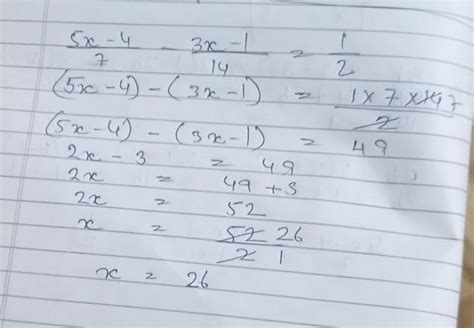 5x-4/7 - 3x-1/14 = 1/2
(5x-4) - (3x-1) = 1x7x147/2
(5x-4) - (3x-1) = 49
2x - 3 = 49
2x = 49 + 3
2x = 52
x = 52 26/2 1
x = 26